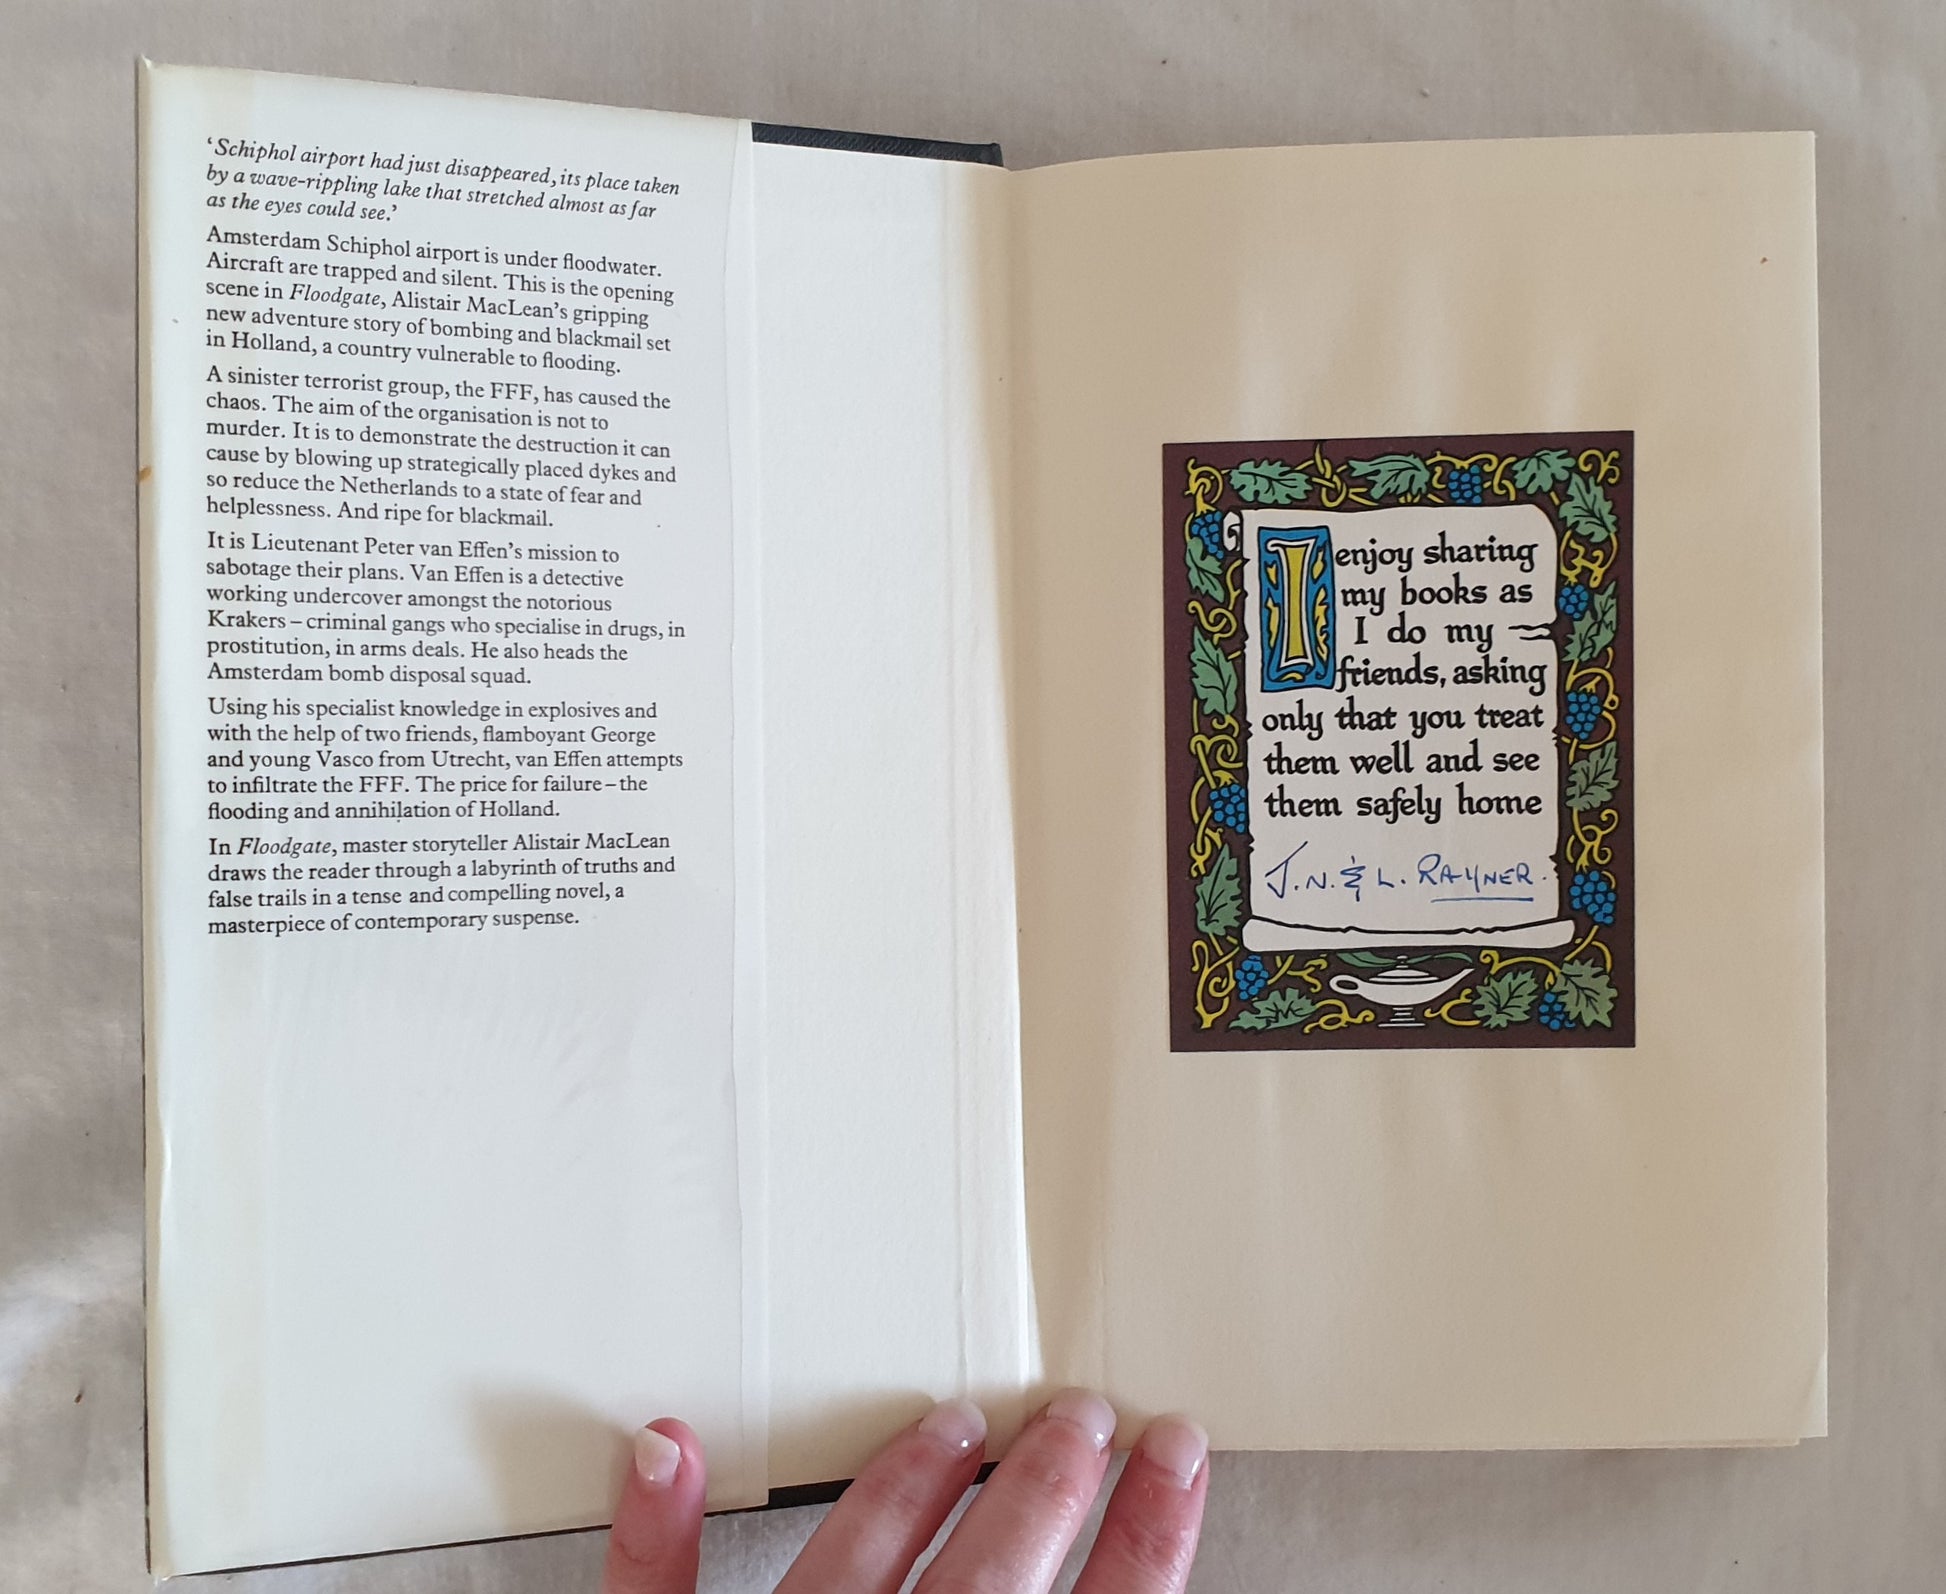 ‘Schiphol airport had just disappeared, its place taken
by a wave-rippling lake that stretched almost as far
as the eyes could see.’
Amsterdam Schiphol airport is under floodwater.
Aircraft are trapped and silent. This is the opening
scene in Floodgate, Alistair MacLean’s gripping
new adventure story of bombing and blackmail set
in Holland, a country vulnerable to flooding.
A sinister terrorist group, the FFF, has caused the
chaos. The aim of the organisation is not to
murder. It is to demonstrate the destruction it can
cause by blowing up strategically placed dykes and
so reduce the Netherlands to a state of fear and
helplessness. And ripe for blackmail.
It is Lieutenant Peter van Effen’s mission to
sabotage their plans. Van Effen is a detective
working undercover amongst the notorious
Krakers – criminal gangs who specialise in drugs, in
prostitution, in arms deals. He also heads the
Amsterdam bomb disposal squad.
Using his specialist knowledge in explosives and
with the help of two friends, flamboyant George
and young Vasco from Utrecht, van Effen attempts
to infiltrate the FFF. The price for failure – the
flooding and annihilation of Holland.
In Floodgate, master storyteller Alistair MacLean
draws the reader through a labyrinth of truths and
false trails in a tense and compelling novel, a
masterpiece of contemporary suspense.
I enjoy sharing
my books as
I do my
friends, asking
only that you treat
them well and see
them safely home
J.N. & L. RAYNER.